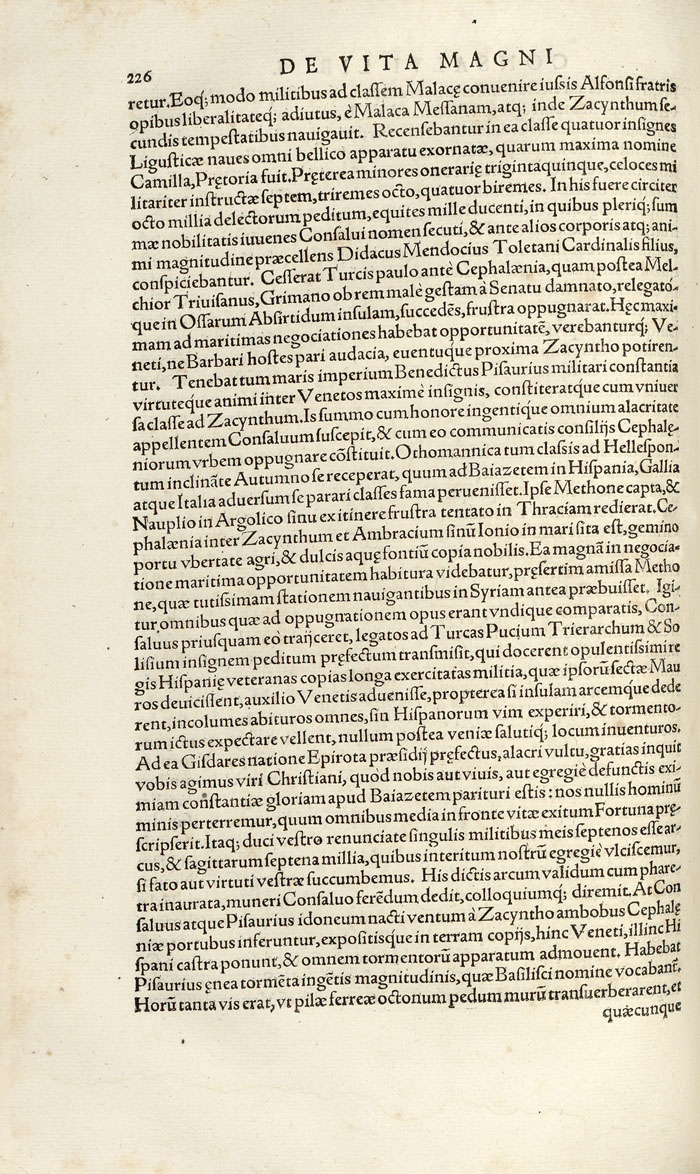 226
DE VITA MAGNI
retur. Eoq; modo militibus ad classem Malacę conuenire iussis Alfonsi fratris
opibus liberalitateq; adiutus, è Malaca Messanam, atq; inde Zacynthum se-
cundis tempestatibus nauigauit. Recensebantur in ea classe quatuor insignes
Ligusticæ naues omni bellico apparatu exornatæ, quarum maxima nomine
Camilla, Prętoria fuit. Pręterea minores onerarię trigintaquinque, celoces mi
litariter instructæ septem, triremes octo, quatuor biremes. In his fuere circiter
octo millia delectorum peditum, equites mille ducenti, in quibus pleriq; sum
mæ nobilitatis iuuenes Consalui nomen secuti, & ante alios corporis atq; ani-
mi magnitudine præcellens Didacus Mendocius Toletani Cardinalis filius,
conspiciebantur. Cesserat Turcis paulo antè Cephalænia, quam postea Mel-
chior Triuisanus, Grimano ob rem malè gestam à Senatu damnato, relegato-
que in Ossarum Absirtidum insulam, succedēs, frustra oppugnarat. Hęc maxi-
mam ad maritimas negociationes habebat opportunitatē, verebanturq; Ve-
neti, ne Barbari hostes pari audacia, euentuque proxima Zacyntho potiren-
tur. Tenebat tum maris imperium Benedictus Pisaurius militari constantia
virtuteque animi inter Venetos maximè insignis, constiteratque cum vniuer
sa classe ad Zacynthum. Is summo cum honore ingentique omnium alacritate
appellentem Consaluum suscepit, & cum eo communicatis consilijs Cephalę-
niorum vrbem oppugnare cōstituit. Othomannica tum classis ad Hellespon-
tum inclināte Autumno se receperat, quum ad Baiazetem in Hispania, Gallia
atque Italia aduersum se parari classes fama peruenisset. Ipse Methone capta, &
Nauplio in Argolico sinu ex itinere frustra tentato in Thraciam redierat. Ce-
phalænia inter Zacynthum et Ambracium sinū Ionio in mari sita est, gemino
portu vbertate agri, & dulcis aquę fontiū copia nobilis. Ea magnā in negocia-
tione maritima opportunitatem habitura videbatur, pręsertim amissa Metho
ne, quæ tutissimam stationem nauigantibus in Syriam antea præbuisset. Igi-
tur omnibus quæ ad oppugnationem opus erant vndique comparatis, Con-
saluus priusquam eò traijceret, legatos ad Turcas Pucium Trierarchum & So
lisium insignem peditum pręfectum transmisit, qui docerent opulentissimi re
gis Hispanię veteranas copias longa exercitatas militia, quæ ipsorū sectæ Mau
ros deuicissent, auxilio Venetis aduenisse, propterea si insulam arcemque dede
rent, incolumes abituros omnes, sin Hispanorum vim experiri, & tormento-
rum ictus expectare vellent, nullum postea veniæ salutiq; locum inuenturos.
Ad ea Gisdares natione Epirota præsidij pręfectus, alacri vultu, gratias inquit
vobis agimus viri Christiani, quod nobis aut viuis, aut egregiè defunctis exi-
miam constantiæ gloriam apud Baiazetem parituri estis: nos nullis hominū
minis perterremur, quum omnibus media in fronte vitæ exitum Fortuna prę-
scripserit. Itaq; duci vestro renunciate singulis militibus meis septenos esse ar-
cus, & sagittarum septena millia, quibus interitum nostrū egregiè vlciscemur,
si fato aut virtuti vestræ succumbemus. His dictis arcum validum cum phare-
tra inaurata, muneri Consaluo ferēdum dedit, colloquiumq; diremit. At Con
saluus atque Pisaurius idoneum nacti ventum à Zacyntho ambobus Cephalę
niæ portubus inferuntur, expositisque in terram copijs, hinc Veneti, illinc Hi
spani castra ponunt, & omnem tormentorū apparatum admouent. Habebat
Pisaurius ęnea tormēta ingētis magnitudinis, quæ Basilisci nomine vocabant.
Horū tanta vis erat, vt pilæ ferreæ octonum pedum murū transuerberarent, et
quæcunque